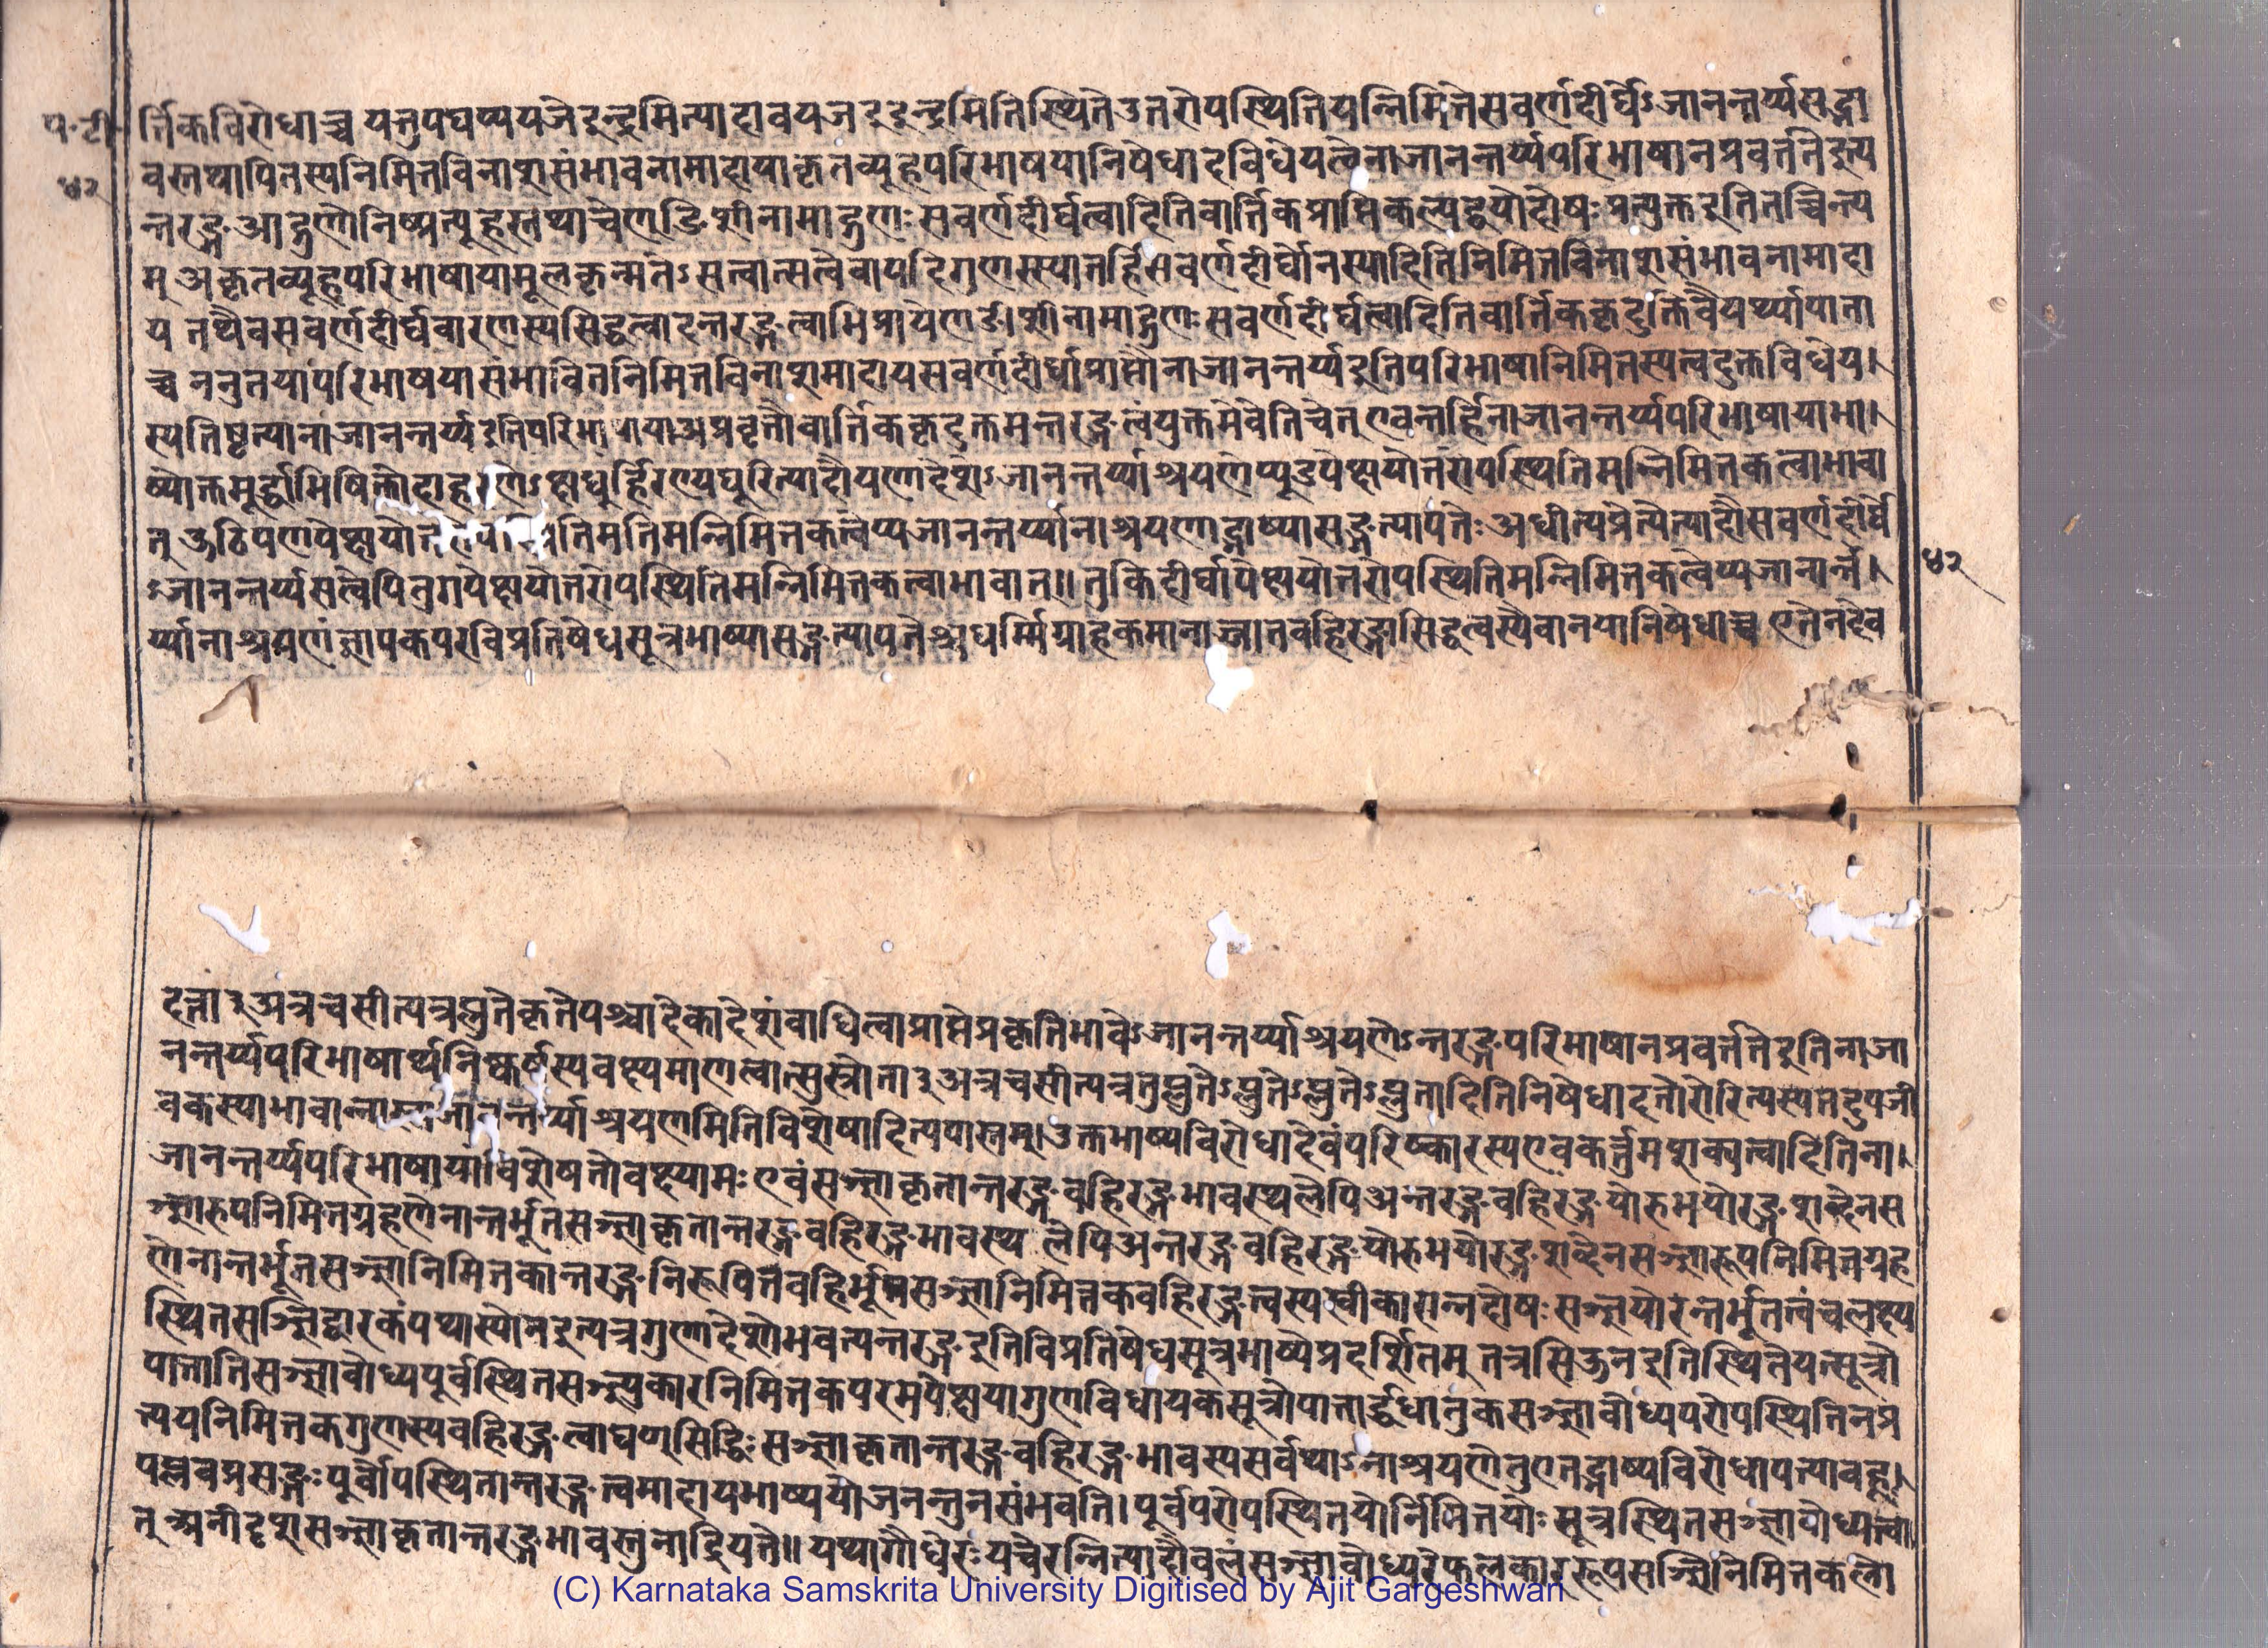 प॰ टी॰
४२
र्त्तिकविरोधाच्च यत्तुपचष्ययजेइन्द्रमित्यादावयजइइन्द्रमितिस्थितेउत्तरोपस्थितियन्निमित्तेसवर्णदीर्घेऽजानन्तर्य्यसद्भा
वस्तथापितस्यनिमित्तविनाशसंभावनामादायाकृतव्यूहपरिभाषयानिषेधादविधेयत्वेनाजानन्तर्य्यपरिभाषानप्रवर्त्ततेइत्य
न्तरङ्गआद्गुणोनिष्प्रत्यूहस्तथाचेणङिशीनामाद्गुणः सवर्णदीर्घत्वादितिवार्त्तिकप्राप्तिकल्पद्वयोर्दोषः प्रत्युक्तइतितच्चिन्त्य
म् अकृतव्यूहपरिभाषायामूलकृन्मतेऽसत्वात्सत्वेवापदिगुणस्स्यात्तर्हिसवर्णदीर्घोनस्यादितिनिमित्तविनाशसंभावनामादा
य तथैवसवर्णदीर्घवारणस्यसिद्धत्वादन्तरङ्गत्वाभिप्रायेणङीशीनामाद्गुणः सवर्णदीर्घत्वादितिवार्त्तिककृदुक्तिवैयर्थ्यापाता
च्च ननुतयापरिभाषयासंभावितनिमित्तविनाशमादायसवर्णदीर्घाप्राप्तौनाजानन्तर्य्यइतिपरिभाषानिमित्तस्यत्वदुक्तविधेय।
स्यतिष्टत्यानाजानन्तर्य्यइतिपरिभाषायाअप्रवृत्तौवार्त्तिककृदुक्तमन्तरङ्गत्वंयुक्तमेवेतिचेत् एवन्तर्हिनाजानन्तर्य्यपरिभाषायाभा।
ष्योक्तमूर्द्धाभिषिक्तोदाहरणेऽक्षद्यूर्हिरण्यद्युरित्यादौयणादेशेऽजानन्तर्य्याश्रयणेप्यूडपेक्षयोत्तरोपस्थितिमन्निमित्तकत्वाभावा
त् ऊठियणपेक्षयोत्त स्थितिमतिमन्निमित्तकत्वेप्यजानन्तर्य्यानाश्रयणाद्भाष्यासङ्गत्यापत्तेः अधीत्यप्रेत्येत्यादौसवर्णदीर्घे
ऽजानन्तर्य्यसत्वेपितुगपेक्षयोत्तरोपस्थितिमन्निमित्तकत्वाभावात्॥ तुकिदीर्घापेक्षयोत्तरोपस्थितिमन्निमित्तकत्वेप्यजानन्त।
र्य्यानाश्रयणंज्ञापकपरविप्रतिषेधसूत्रभाष्यासङ्गत्यापत्तेश्चधर्म्मिग्राहकमानाज्ञातबहिरङ्गासिद्धत्वस्यैवानयानिषेधाच्च एतेनदेव
४२
दत्ता३अत्रचसीत्यत्रप्लुतेकृतेपश्चादेकादेशंबाधित्वाप्राप्तेप्रकृतिभावेऽजानन्तर्य्याश्रयणेऽन्तरङ्गपरिभाषानप्रवर्त्ततेइतिनाजा
नन्तर्य्यपरिभाषार्थ्यनिष्कर्षस्यवक्ष्यमाणत्वात्सुस्त्रोता३अत्रचसीत्यत्रतुप्लुतेऽप्लुतेऽप्लुतेऽप्लुतादितिनिषेधादतोरोरित्यस्यतदुपजी
वकस्याभावान्ना जानन्तर्य्याश्रयणमितिविशेषादित्यपास्तम्।उक्तभाष्यविरोधादेवंपरिष्कारस्यएवकर्त्तुमशक्यत्वादितिना।
जानन्तर्य्यपरिभाषायांविशेषतोवक्ष्यामः एवंसञ्ज्ञाकृतान्तरङ्गबहिरङ्गभावस्थलेपिअन्तरङ्गबहिरङ्गयोरुभयोरङ्गशब्देनस
ञ्ज्ञारुपनिमित्तग्रहणेनान्तर्भूतसञ्ज्ञाकृतान्तरङ्गबहिरङ्गभावस्थलेपिअन्तरङ्गबहिरङ्गयोरुभयोरङ्गशब्देनसञ्ज्ञारूपनिमित्तग्रह
णेनान्तर्भूतसञ्ज्ञानिमित्तकान्तरङ्गनिरूपितबहिर्भूतसञ्ज्ञानिमित्तकबहिरङ्गत्वस्यस्वीकारान्नदोषः सञ्ज्ञयोरन्तर्भूतत्वंचलक्ष्य
स्थितसञ्ज्ञिद्वारकंपथास्योनइत्यत्रगुणादेशोभवत्यन्तरङ्गइतिविप्रतिषेधसूत्रभाष्येप्रदर्शितम् तत्रसिऊनइतिस्थितेयत्सूत्रो
पात्तातिसञ्ज्ञाबोध्यपूर्वस्थितसञ्ज्ञ्युकारनिमित्तकपरमपेक्षयागुणविधायकसूत्रोपात्तार्द्धधातुकसञ्ज्ञाबोध्यपरोपस्थितिनप्र
त्ययनिमित्तकगुणस्यबहिरङ्गत्वाद्यण्सिद्धिः सञ्ज्ञाकृतान्तरङ्गबहिरङ्गभावस्यसर्वथाऽनाश्रयणेतुएतद्भाष्यविरोधापत्त्याबहू।
पल्लवप्रसङ्गः पूर्वोपस्थितान्तरङ्गत्वमादायभाष्ययोजनन्तुनसंभवति। पूर्वपरोपस्थितयोर्निमित्तयोः सूत्रस्थितसञ्ज्ञाबोध्यत्वा।
त् अनीदृशसञ्ज्ञाकृतान्तरङ्गभावस्तुनाद्रियते॥ यथागौधेरः यचेरन्नित्यादौवलंसञ्ज्ञाबोध्यरेफलकाररूपसञ्ज्ञिनिमित्तकत्वा
(C) Karnataka Samskrita University Digitised by Ajit Gargeshwari